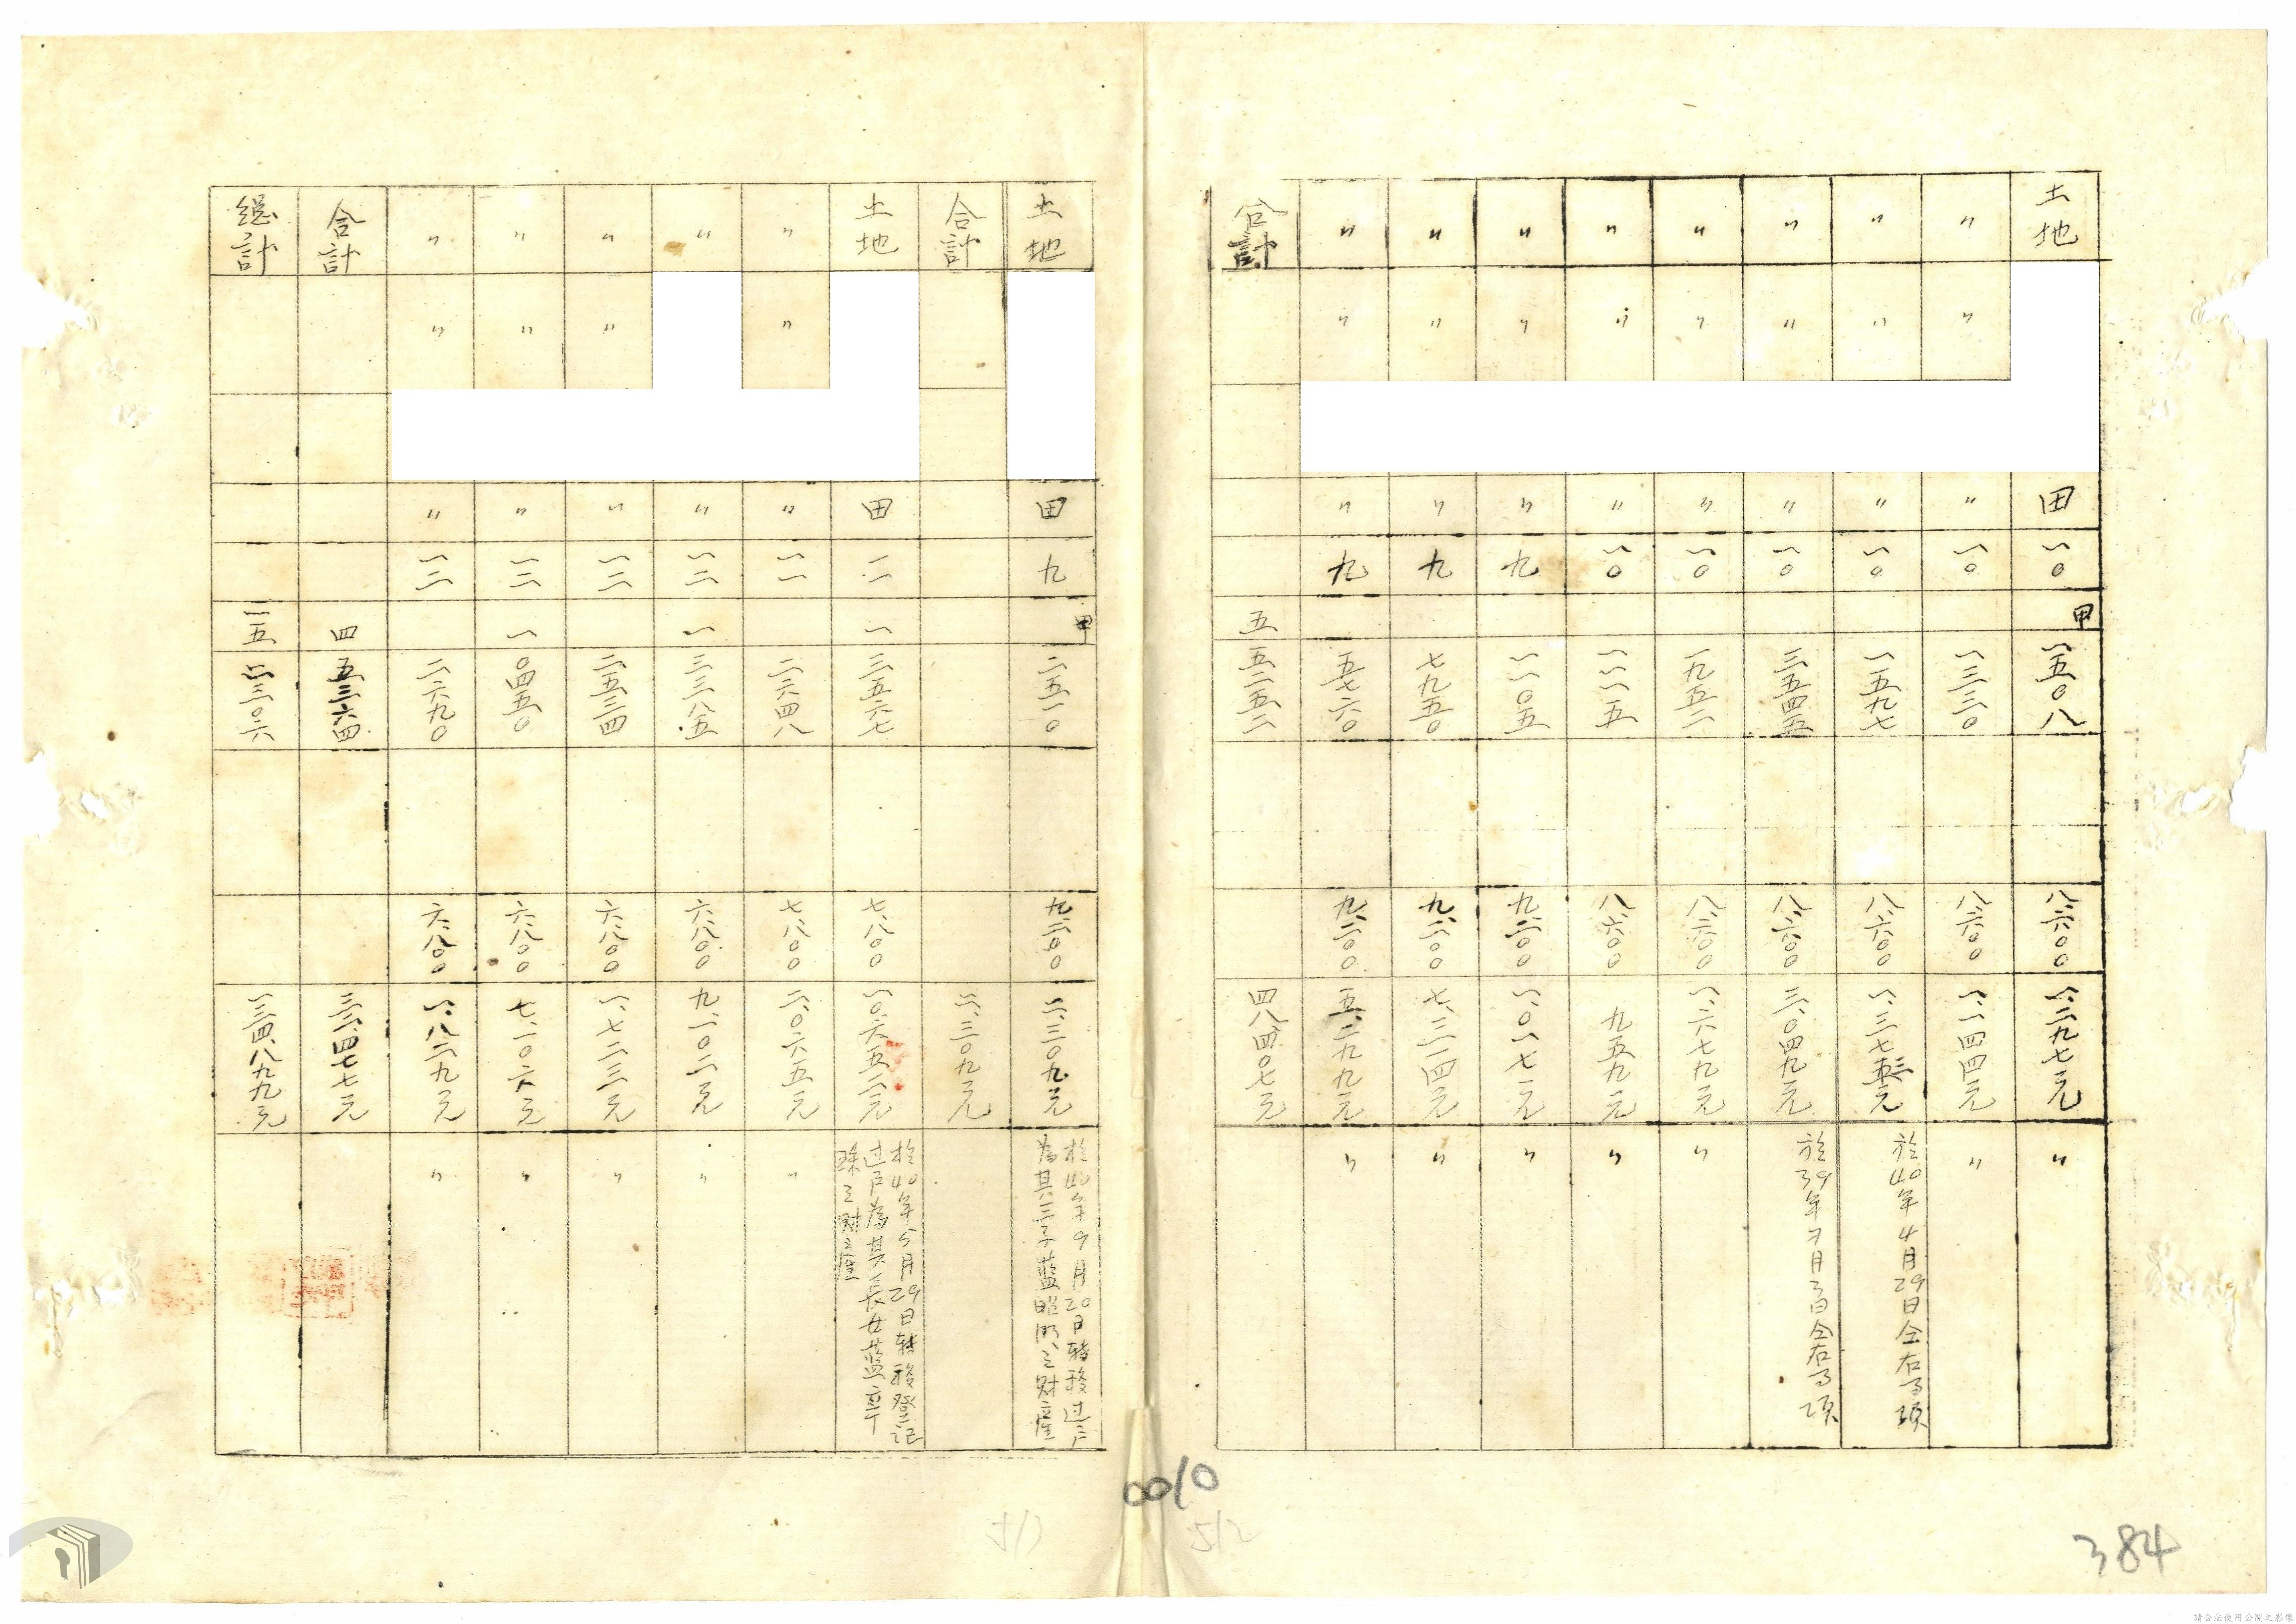 土地 田 一〇 甲 一五〇八 八六〇〇 一、二九七元 〃
〃 〃 〃 一〇 一三三〇 八六〇〇 一、一四四元 〃
〃 〃 〃 一〇 一五九七 八六〇〇 一、三七三元 於40年4月29日仝右事項
〃 〃 〃 一〇 三五四五 八六〇〇 三、〇四九元 於39年7月3日仝右事項
〃 〃 〃 一〇 一九五二 八六〇〇 一、六七九元 〃
〃 〃 〃 一〇 一一一五 八六〇〇 九五九元 〃
〃 〃 〃 九 一一〇五 九二〇〇 一、〇一七元 〃
〃 〃 〃 九 七九五〇 九二〇〇 七、三一四元 〃
〃 〃 〃 九 五七六〇 九二〇〇 五、二九九元 〃
合計 五 五二五二 四八、四〇七元
土地 田 九 甲 二五一〇 九二〇〇 二、三〇九元 於40年9月20日轉移过户
為其三子藍昭明之財產
合計 二、三〇九元
土地 田 一一 一 三六五七 七八〇〇 一〇、六五二元 於40年5月29日轉移登記
过户為其長女藍章
珠之財產
〃 〃 〃 一一 二六四八 七八〇〇 二、〇六五元 〃
〃 〃 一二 一 三三八五 六八〇〇 九、一〇二元 〃
〃 〃 〃 一二 二五三四 六八〇〇 一、七二三元 〃
〃 〃 〃 一二 一 〇四五〇 六八〇〇 七、一〇六元 〃
〃 〃 〃 一二 二六九〇 六八〇〇 一、八二九元 〃
合計 四 五三六四 三二、四七七元
總計 一五 三〇六 一三四、八九九元
0010
512
384
請合法使用公開之影像